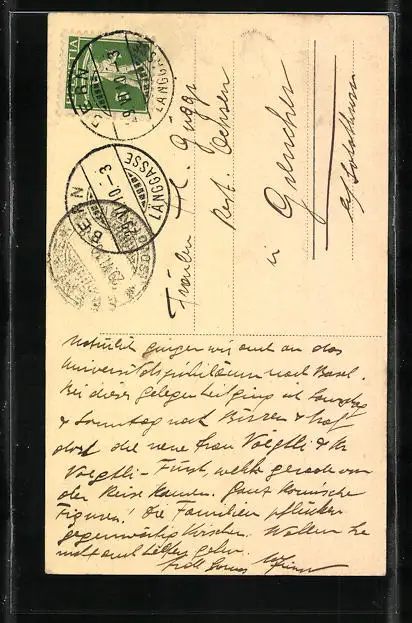 HELVETIA
BERN
LÄNGGASSE
BERN
LÄNGGASSE
Fräulein H. Gugge
Rest. Ochsen
in Grenchen
Kt. Solothurn
Natürlich giengen wir auch an das
Universitätsjubiläum nach Basel.
Bei dieser gelegenheit ging ich Samstag
& Sonntag nach & traf
dort die neue Frau Voegtli & Hr
Voegtli - Fürst, welche gerade von
der Reise kamen. Ganz komische
Figuren! Die Familien pflücken
gegenwärtig Kirschen. Wollen Sie
nicht auch helfen gehen.